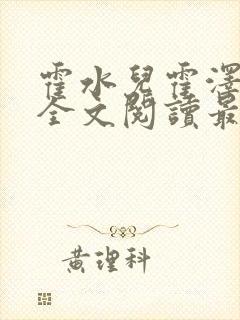 霍水兒霍澤
全文閱讀最
黃理科